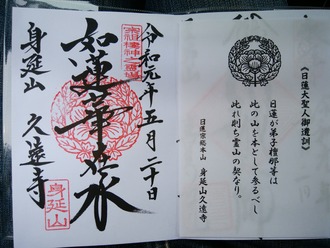 《日蓮大聖人御遺訓》
日蓮が弟子檀那等は
此の山を本として参るべし
此れ則ち霊山の契なり。
日蓮宗総本山　身延山久遠寺
令和元年五月二十日
如蓮華在水
身延山　久遠寺
身延山